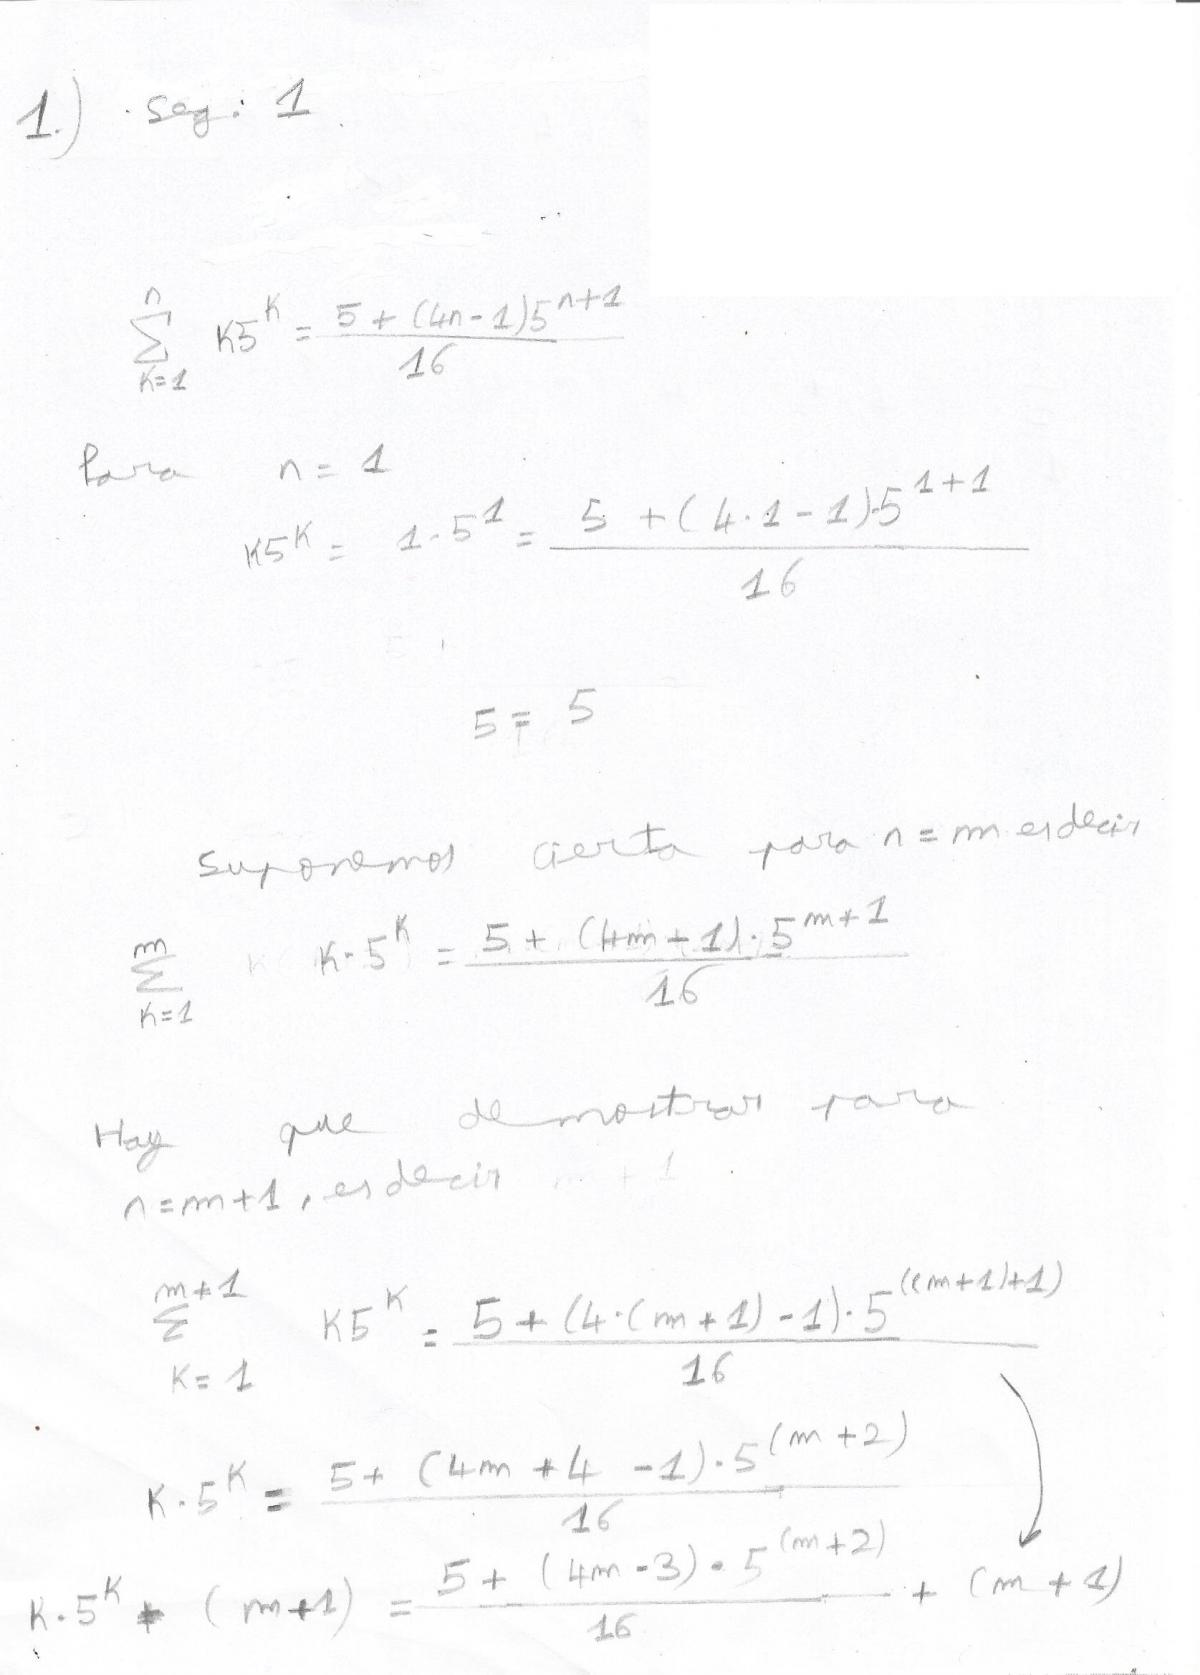 1.) Seg: 1
n
∑ K5^K = (5 + (4n - 1)5^(n+1)) / 16
K=1
Para n = 1
K5^K = 1 · 5^1 = (5 + (4 · 1 - 1) · 5^(1+1)) / 16
5 = 5
Suponemos cierta para n = m es decir
m
∑ K · 5^K = (5 + (4m + 1) · 5^(m+1)) / 16
K=1
Hay que demostrar para
n = m + 1, es decir m + 1
m + 1
∑ K5^K = (5 + (4 · (m + 1) - 1) · 5^((m+1)+1)) / 16
K = 1
K · 5^K = (5 + (4m + 4 - 1) · 5^(m+2)) / 16
K · 5^K + (m + 1) = (5 + (4m - 3) · 5^(m+2)) / 16 + (m + 1)